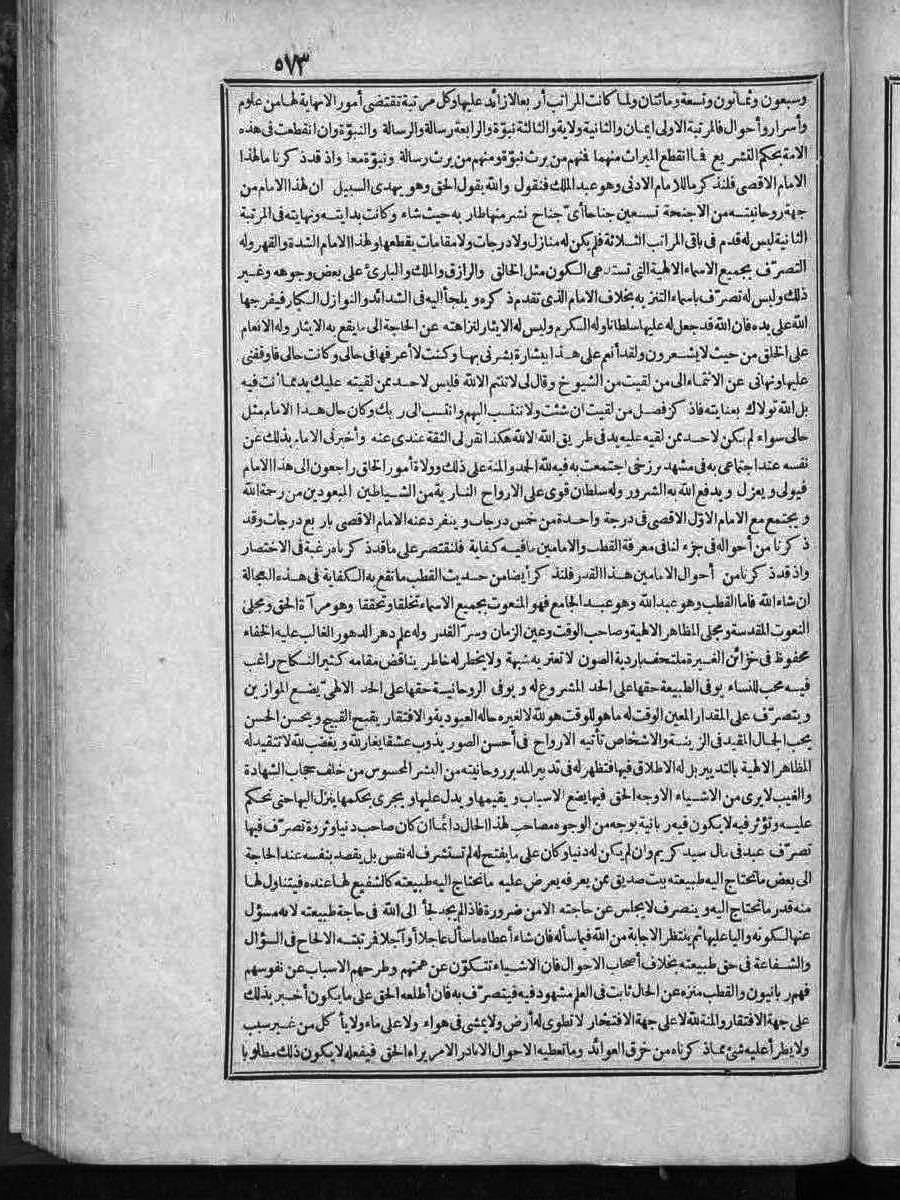 ٥٧٣
وسبعون وثمانون وتسعة ومائتان ولما كانت المراتب أربعا لا زائد عليها وكل مرتبة تقتضى أمورا لا نهاية لها من علوم
وأسرار وأحوال فالمرتبة الاولى ايمان والثانية ولاية والثالثة نبوّة والرابعة رسالة والرسالة والنبوّة وان انقطعت فى هذه
الامة بحكم التشريع فما انقطع الميراث منهما فنهم من يرث نبوّة ومنهم من يرث رسالة ونبوّة معا واذ قد ذكرنا ما لهذا
الامام الاقصى فلنذكر ما للامام الادنى وهو عبد الملك فنقول والله يقول الحق وهو يهدى السبيل ان لهذا الامام من
جهة روحانيته من الاجنحة تسعين جناحا أىّ جناح نشر منها طار به حيث شاء وكانت بدايته ونهايته فى المرتبة
الثانية ليس له قدم فى باقى المراتب الثلاثة فلم يكن له منازل ولا درجات ولا مقامات يقطعها ولهذا الامام الشدة والقهر وله
التصرّف بجميع الاسماء الالهية التى تستدعى الكون مثل الخالق والرازق والملك والبارئ على بعض وجوهه وغير
ذلك وليس له تصرّف باسماء التنزيه بخلاف الامام الذى تقدم ذكره ويلجأ اليه فى الشدائد والنوازل الكبار فيفرجها
الله على يده فان الله قد جعل له عليها سلطانا وله الكرم وليس له الايثار لنزاهته عن الحاجة الى ما يقع به الايثار وله الانعام
على الخلق من حيث لا يشعرون ولقد أنعم على هذا ببشارة بشرنى بها وكنت لا أعرفها فى حالى وكانت حالى فاوقفنى
عليها ونهانى عن الانتماء الى من لقيت من الشيوخ وقال لى لا تنتم الا لله فليس لاحد ممن لقيته عليك يد مما أنت فيه
بل الله تولاك بعنايته فاذكر فضل من لقيت ان شئت ولا تنتسب اليهم وانتسب الى ربك وكان حال هذا الامام مثل
حالى سواء لم يكن لاحد ممن لقيه عليه يد فى طريق الله الا الله هكذا نقر لى الثقة عندى عنه وأخبرنى الامام بذلك عن
نفسه عند اجتماعى به فى مشهد برزخى اجتمعت به فيه لله الحمد والمنة على ذلك وولاة أمور الخلق راجعون الى هذا الامام
فيولى ويعزل ويدفع الله به الشرور وله سلطان قوى على الارواح النارية من الشياطين المبعودين من رحمة الله
ويجتمع مع الامام الاوّل الاقصى فى درجة واحدة من خمس درجات وينفرد عنه الامام الاقصى باربع درجات وقد
ذكرنا من أحواله فى جزء لنا فى معرفة القطب والامامين ما فيه كفاية فلنقتصر على ما قد ذكرناه رغبة فى الاختصار
واذ قد ذكرنا من أحوال الامامين هذا القدر فلنذكر أيضا من حديث القطب ما تقع به الكفاية فى هذه العجالة
ان شاء الله فاما القطب وهو عبد الله وهو عبد الجامع فهو المنعوت بجميع الاسماء تخلقا وتحققا وهو مرآة الحق ومجلى
النعوت المقدسة ومجلى المظاهر الالهية وصاحب الوقت وعين الزمان وسرّ القدر وله علم دهر الدهور الغالب عليه الخفاء
محفوظ فى خزائن الغيرة ملتحف باردية الصون لا تعتريه شبهة ولا يخطر له خاطر يناقض مقامه كثير النكاح راغب
فيه محب للنساء يوفى الطبيعة حقها على الحد المشروع له ويوفى الروحانية حقها على الحد الالهىّ يضع الموازين
ويتصرّف على المقدار المعين الوقت له ما هو للوقت هو لله لا لغيره حاله العبودية والافتقار يقبح القبيح ويحسن الحسن
يحب الجمال المقيد فى الزينة والاشخاص تأتيه الارواح فى أحسن الصور يذوب عشقا يغار لله ويغضب لله لا تتقيد له
المظاهر الالهية بالتدبير بل له الاطلاق فيها فتظهر له فى تدبير المدبر روحانيته من البشر المحسوس من خلف حجاب الشهادة
والغيب لا يرى من الاشياء الا وجه الحق فيها يضع الاسباب ويقيمها ويدل عليها ويجرى بحكمها ينزل اليها حتى تحكم
عليه وتؤثر فيه لا يكون فيه ربانية بوجه من الوجوه مصاحب لهذا الحال دائما ان كان صاحب دنيا وثروة تصرّف فيها
تصرّف عبد فى مال سيد كريم وان لم يكن له دنيا وكان على ما يفتح له لم تستشرف له نفس بل يقصد بنفسه عند الحاجة
الى بعض ما تحتاج اليه طبيعته بيت صديق ممن يعرفه يعرض عليه ما تحتاج اليه طبيعته كالشفيع لها عنده فيتناول لها
منه قدر ما تحتاج اليه وينصرف لا يجلس عن حاجته الا من ضرورة فاذا لم يجد لجأ الى الله فى حاجة طبيعته لانه مسؤل
عنها لكونه واليا عليها ثم ينتظر الاجابة من الله فيما سأله فان شاء أعطاه ما سأل عاجلا أو آجلا فرتبته الالحاح فى السؤال
والشفاعة فى حق طبيعته بخلاف أصحاب الاحوال فان الاشياء تتكوّن عن همتهم وطرحهم الاسباب عن نفوسهم
فهم ربانيون والقطب منزه عن الحال ثابت فى العلم مشهود فيه فيتصرّف به فان أطلعه الحق على ما يكون أخبر بذلك
على جهة الافتقار والمنة لله لا على جهة الافتخار لا تطوى له أرض ولا يمشى فى هواء ولا على ماء ولا يأكل من غير سبب
ولا يطرأ عليه شئ مما ذكرناه من خرق العوائد وما تعطيه الاحوال الا نادر الامر يراه الحق فيفعله لا يكون ذلك مطلوبا